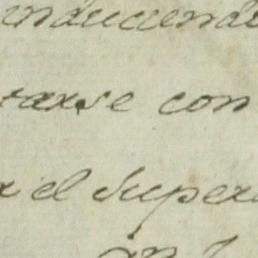 induciend
tarse con
el Super